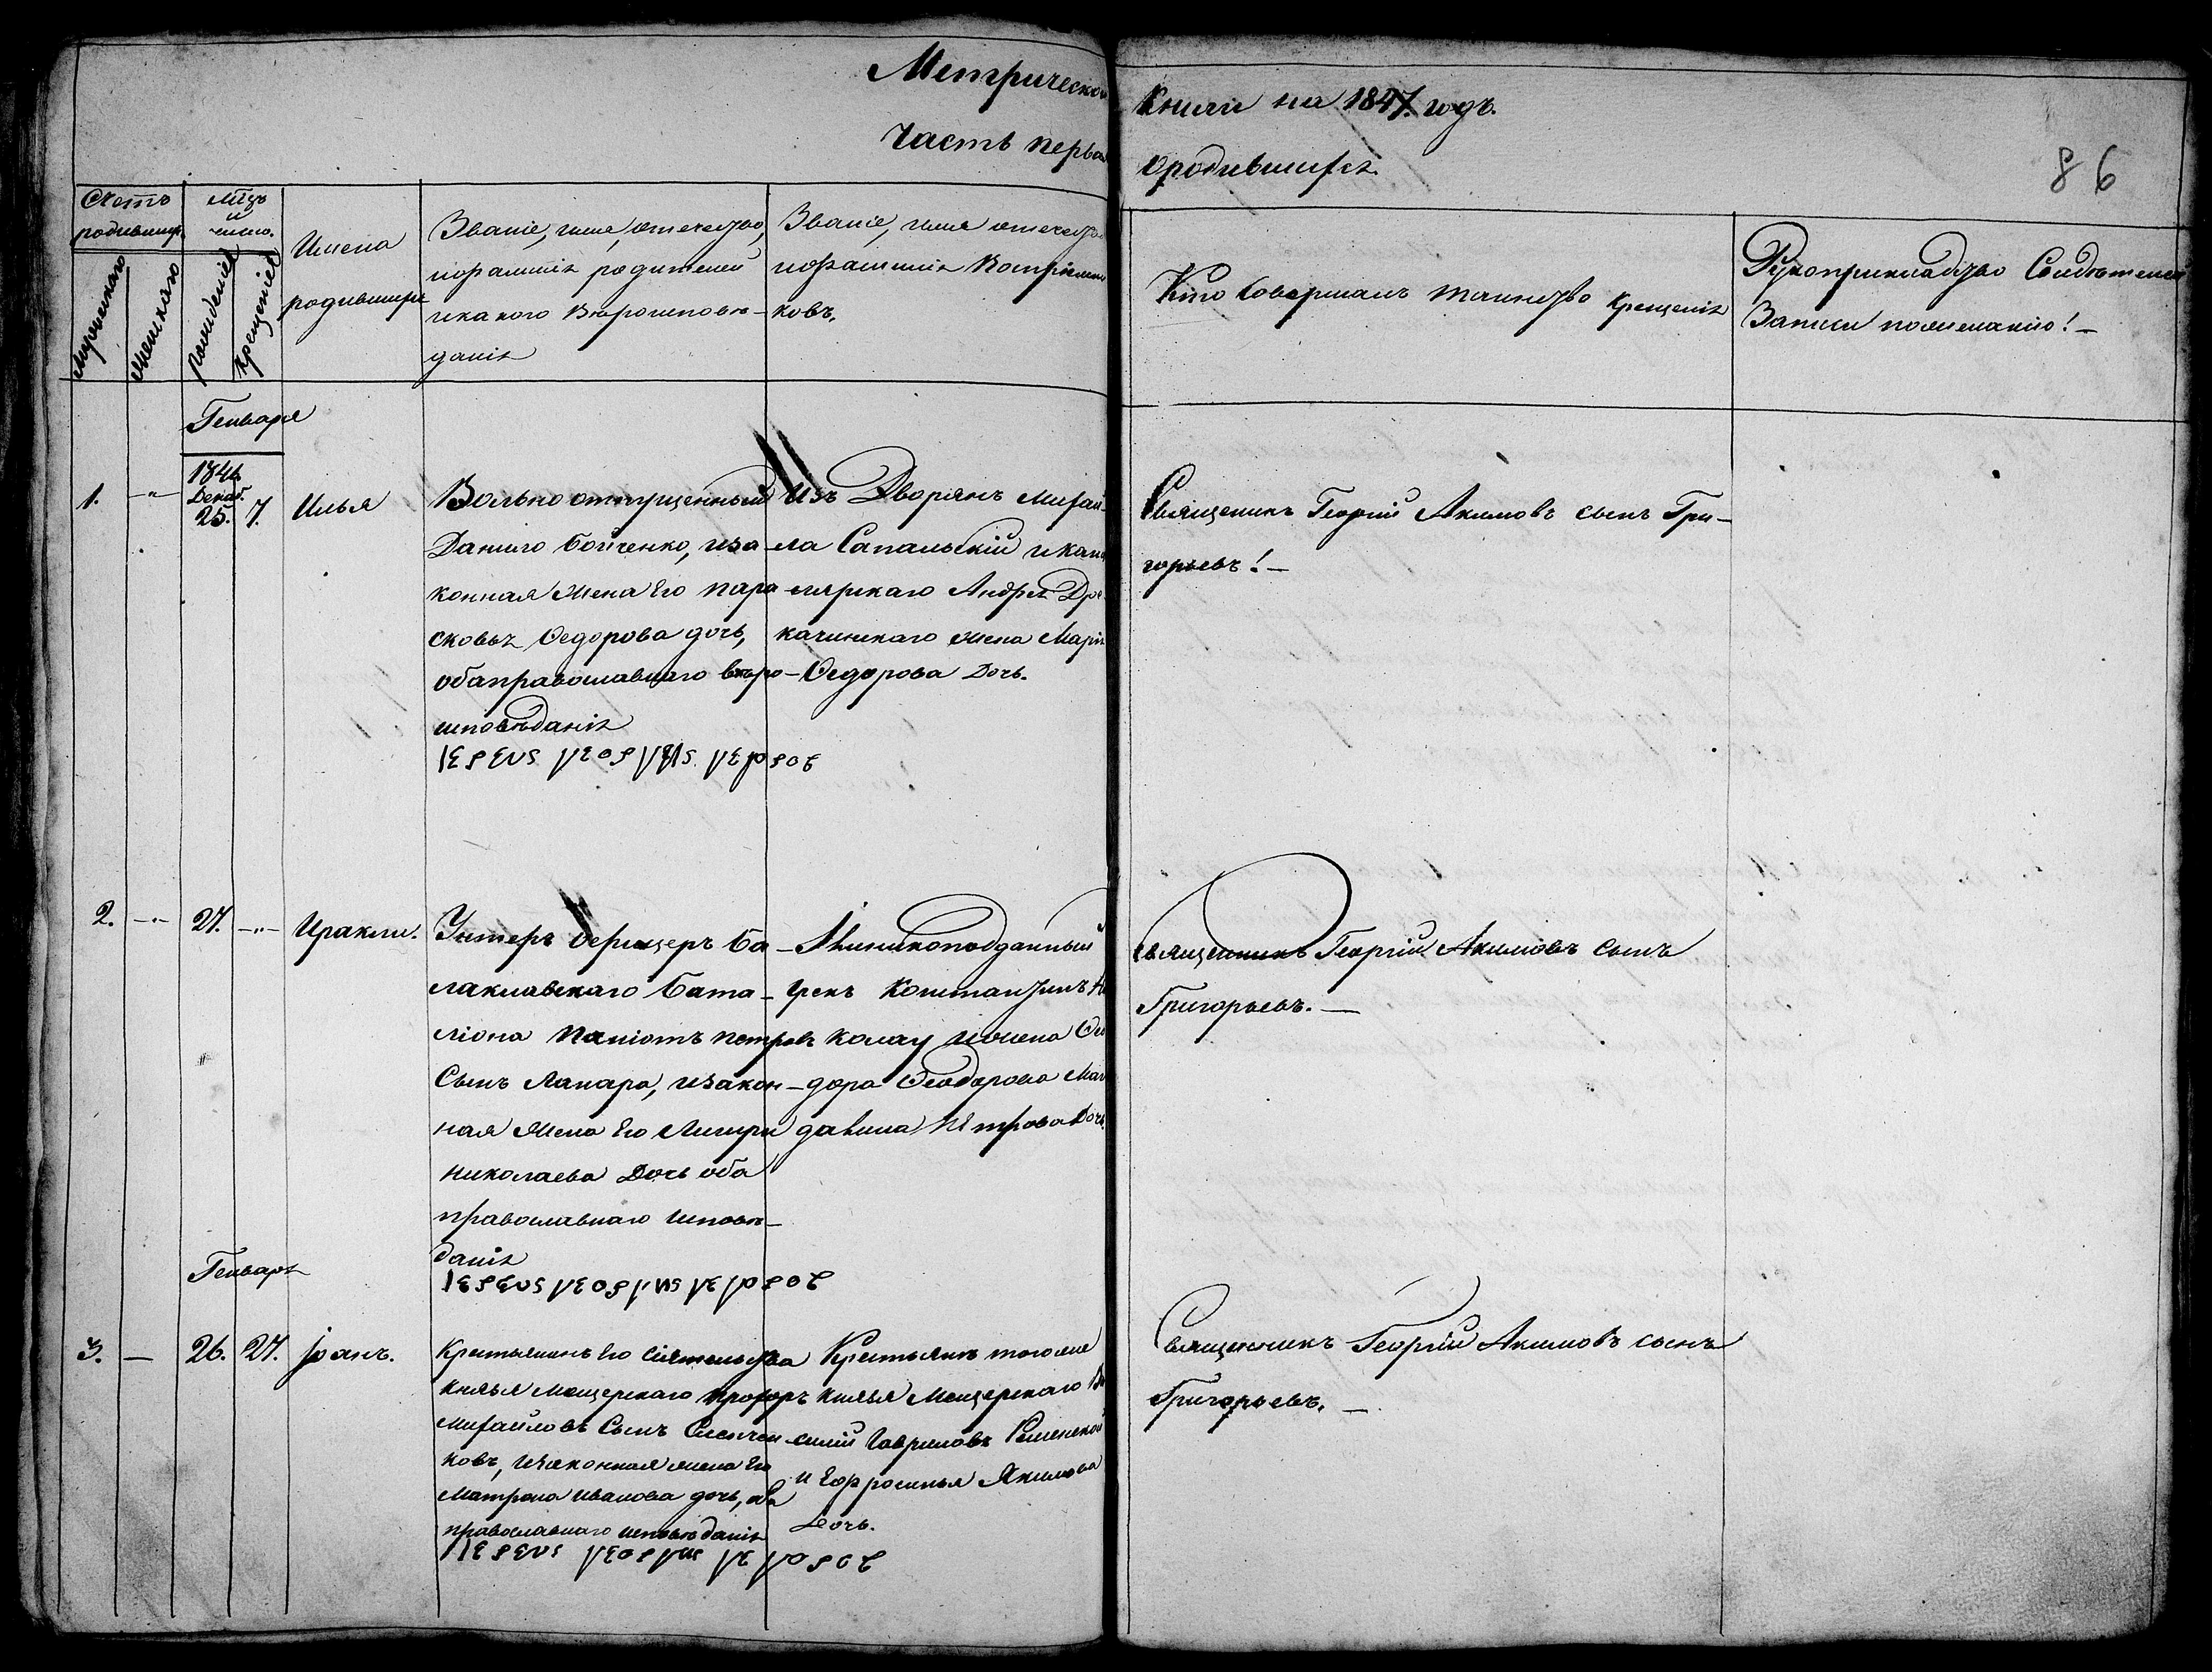 Метрической
Книги на 1847. годъ.
Часть первая
ородившихся.
86
Счетъ
родивших.
Мужескаго
Женскаго
Мцъ
и
число.
рожденіе
крещеніе
Имена
родившихся
Званіе, имя, отечество,
ифамилія родителей
икакого Вѣроисповѣ-
данія
Званіе, имя отечество
ифамилія Воспріемни
ковъ.
Кто Совершалъ таинство Крещенія
Рукоприкладство Свидѣтелей
Записи пожеланію! —
Генваря
1. -"- 1846 Декаб. 25. 7. Илья
Вольно отпущенный
Данило Бойченко, иза
конная Жена Его пара
сковья Ѳедорова дочь,
обаправославнаго вѣро-
исповѣданія
Изъ Дворянъ Михаи-
ла Сапальскій и
Андрея
жена Марія
Ѳедорова Дочь.
Священикъ Георгій Акимовъ сынъ Гри-
горьевъ! —
2. -"- 27. -"- Иракли.
Унтеръ Офицеръ Ба-
лаклавскаго Бата-
ліона Паніотъ петровъ
Сынъ Лапара, изакон-
ная Жена Его
Николаева Дочь оба
православнаго исповѣ-
данія
подданный
Грекъ Констан
Ѳео
дора Ѳеодорова
Петрова Дочь.
Священникъ Георгій Акимовъ Сынъ
Григорьевъ. —
Генваря
3. — 26. 27. Іоанъ.
Крестьянинъ Его Сіятельства
Князья Мещерскаго Прохоръ
Михайловъ Сынъ
ковъ, изаконная жена Его
Матрона Иванова дочь, оба
православнаго исповѣданія
Крестьянъ тогоже
Князья Мещерскаго Ва
силій Гавриловъ
и Ефросинья Якимова
Дочь.
Священникъ Георгій Акимовъ сынъ
Григорьевъ. —